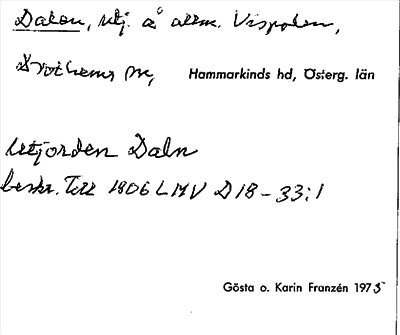 Dalen, utj. å allm. Vispolen,
Drothems sn, Hammarkinds hd, Österg. län
Utjorden Daln
beskr. till 1806 LMV D18-33:1
Gösta o. Karin Franzén 1975